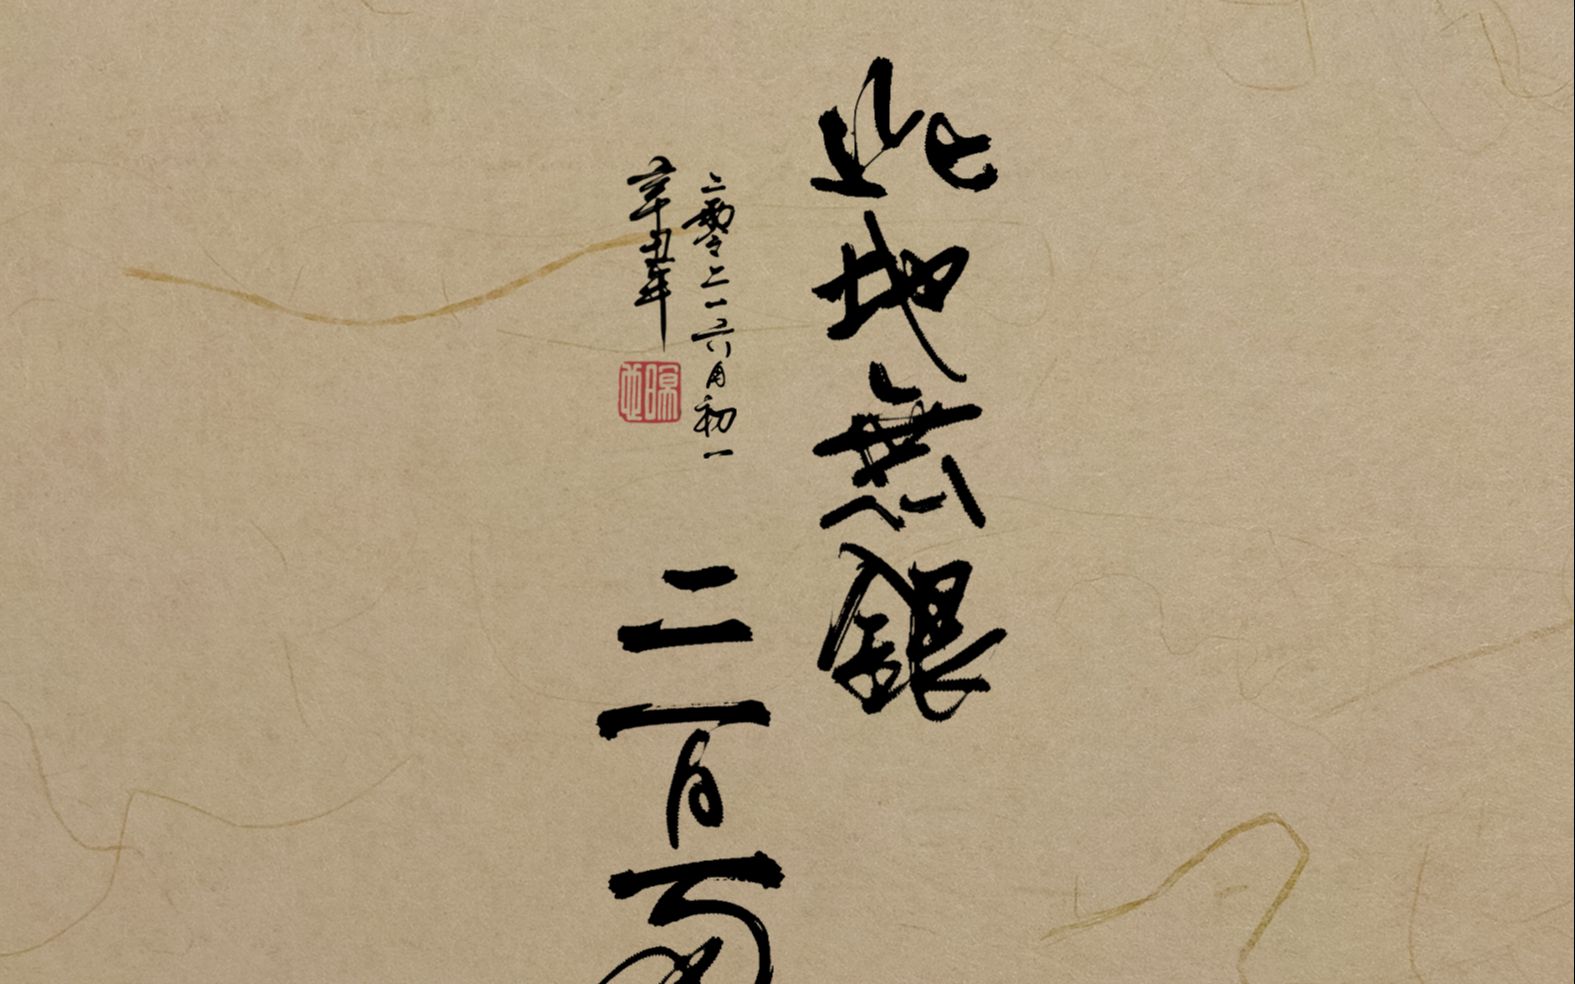 此地無銀
二百两
二零二一六月初一
辛丑年